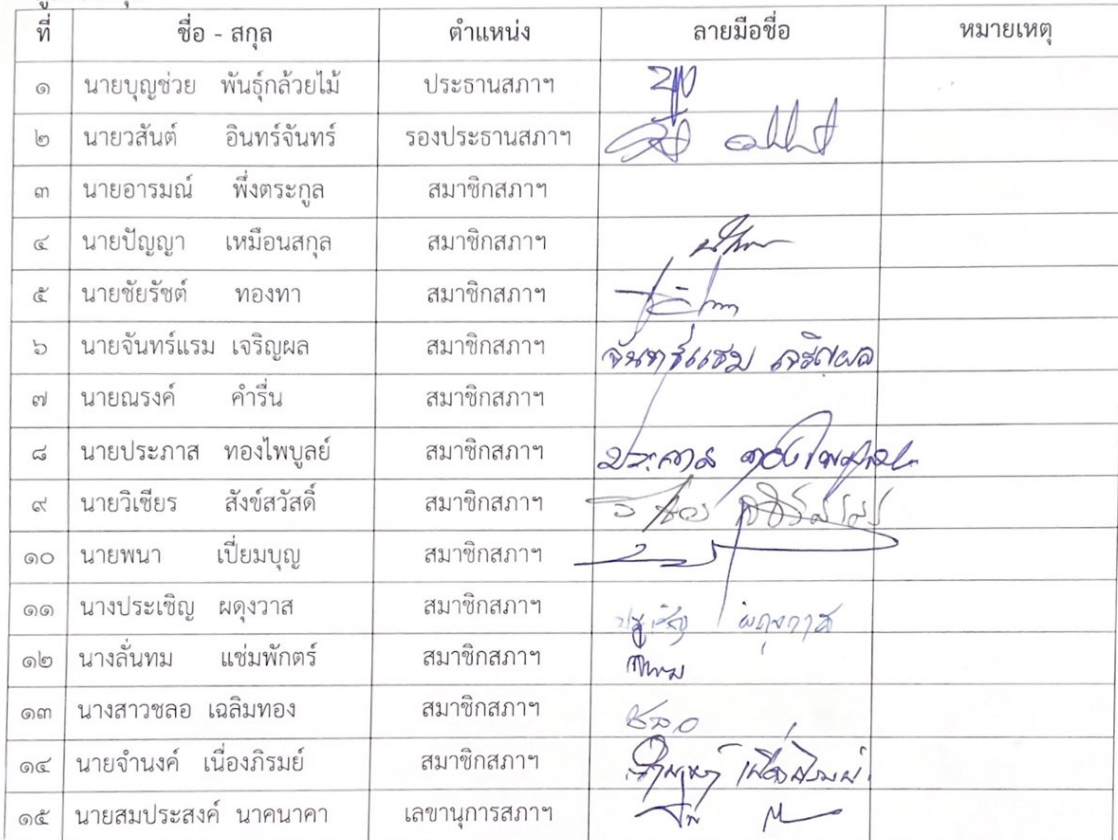 ที่ ชื่อ - สกุล ตำแหน่ง ลายมือชื่อ หมายเหตุ
๑ นายบุญช่วย พันธุ์กล้วยไม้ ประธานสภาฯ
๒ นายวสันต์ อินทร์จันทร์ รองประธานสภาฯ
๓ นายอารมณ์ พึ่งตระกูล สมาชิกสภาฯ
๔ นายปัญญา เหมือนสกุล สมาชิกสภาฯ
๕ นายชัยรัชต์ ทองทา สมาชิกสภาฯ
๖ นายจันทร์แรม เจริญผล สมาชิกสภาฯ จันทร์แรม เจริญผล
๗ นายณรงค์ คำรื่น สมาชิกสภาฯ
๘ นายประภาส ทองไพบูลย์ สมาชิกสภาฯ ประภาส ทองไพบูลย์
๙ นายวิเชียร สังข์สวัสดิ์ สมาชิกสภาฯ
๑๐ นายพนา เปี่ยมบุญ สมาชิกสภาฯ
๑๑ นางประเชิญ ผดุงวาส สมาชิกสภาฯ ประเชิญ ผดุงวาส
๑๒ นางลั่นทม แช่มพักตร์ สมาชิกสภาฯ
๑๓ นางสาวชลอ เฉลิมทอง สมาชิกสภาฯ ชลอ
๑๔ นายจำนงค์ เนื่องภิรมย์ สมาชิกสภาฯ
๑๕ นายสมประสงค์ นาคนาคา เลขานุการสภาฯ